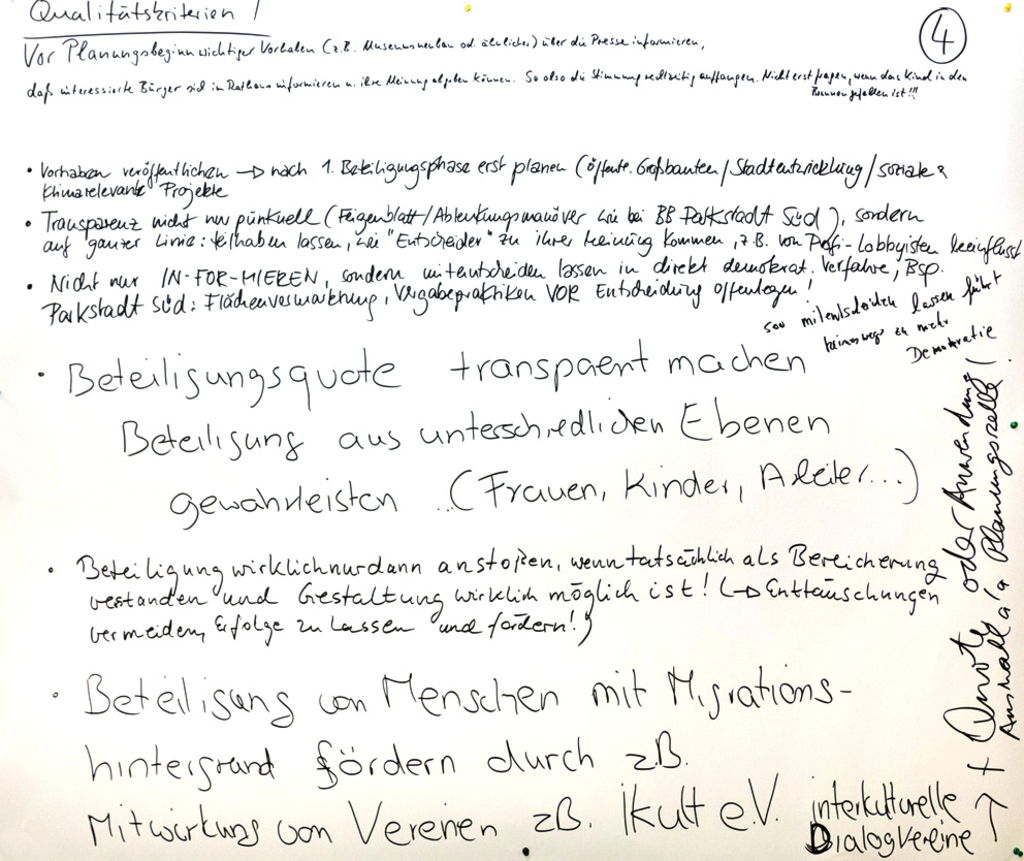 Qualitätskriterien /
4
Vor Planungsbeginn wichtiger Vorhaben (z.B. Museumsneubau od. ähnliches) über die Presse informieren,
daß interessierte Bürger sich im Rathaus informieren u. ihre Meinung abgeben können. So also die Stimmung rechtzeitig auffangen. Nicht erst fragen, wenn das Kind in den
Brunnen gefallen ist!!!
• Vorhaben veröffentlichen → nach 1. Beteiligungsphase erst planen (öffentl. Großbauten / Stadtentwicklung / soziale &
Klimarelevante Projekte
• Transparenz nicht nur pünktuell (Feigenblatt / Ablenkungsmanöver wie bei BB Parkstadt Süd), sondern
auf ganzer Linie: teilhaben lassen, wie "Entscheider" zu ihrer Meinung kommen, z.B. von Profi-Lobbyisten beeinflusst
• Nicht nur IN-FOR-MIEREN, sondern mitentscheiden lassen in direkt demokrat. Verfahre, Bsp.
Parkstadt Süd: Flächenvermarktung, Vergabepraktiken VOR Entscheidung offenlegen!
mitentscheiden lassen führt
keineswegs zu mehr
Demokratie
• Beteiligungsquote transpaent machen
Beteiligung aus unterschiedlichen Ebenen
gewährleisten ..(Frauen, Kinder, Arbeiter...)
• Beteiligung wirklich nur dann anstoßen, wenn tatsächlich als Bereicherung
verstanden und Gestaltung wirklich möglich ist! (→ Enttäuschungen
vermeiden, Erfolge zu lassen und fördern!)
• Beteiligung von Menschen mit Migrations-
hintergrund fördern durch z.B.
Mitwirkung von Vereinen z.B. Ikult e.V. interkulturelle
Dialogvereine
→ + Quote oder Anwendung
Auswahl a/a Planungszelle!